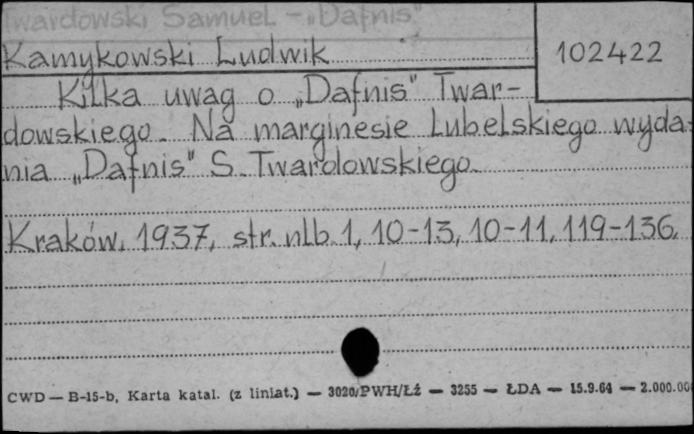 Twardowski Samuel - „Dafnis"
Kamykowski Ludwik
102422
Kilka uwag o „Dafnis" Twar-
dowskiego. Na marginesie lubelskiego wyda-
nia „Dafnis" S. Twardowskiego.
Kraków, 1937, str. nlb. 1, 10-13, 10-11, 119-136.
CWD — B-15-b, Karta katal. (z liniat.) — 3020/PWH/Łź — 3255 — ŁDA — 15.9.64 — 2.000.00